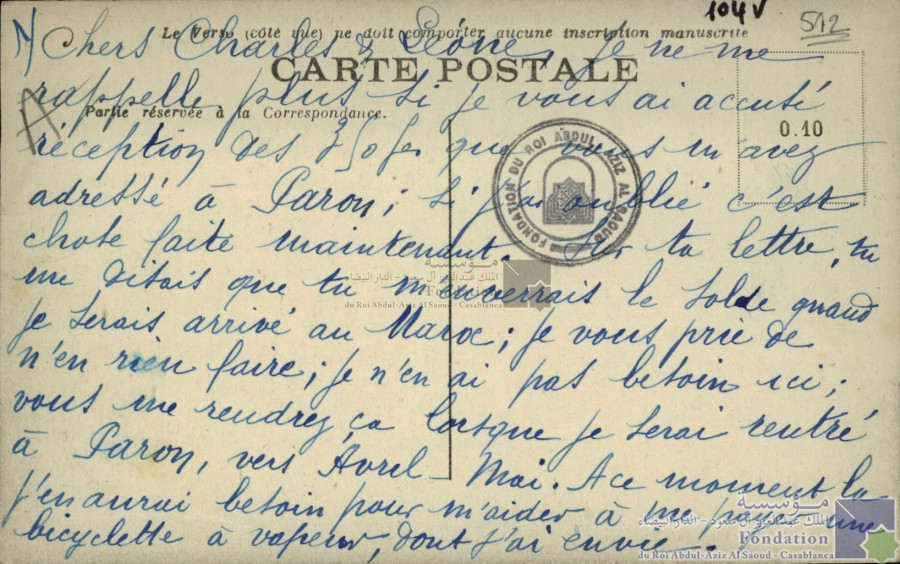 104V
512
Le Verso (côté vue) ne doit comporter aucune inscription manuscrite
Chers Charles & Léone, Je ne me
CARTE POSTALE
rappelle plus si je vous ai accusé
Partie réservée à la Correspondance.
0.10
réception des 350 frs que vous m'avez
adressé à Paron; si j'ai oublié c'est
chose faite maintenant. Sur ta lettre, tu
me disais que tu m'enverrais le solde quand
je serais arrivé au Maroc; je vous prie de
n'en rien faire; je n'en ai pas besoin ici;
vous me rendrez ça lorsque je serai rentré
à Paron, vers Avril-Mai. A ce moment là
j'en aurai besoin pour m'aider à me payer une
bicyclette à vapeur, dont j'ai envie.
FONDATION DU ROI ABDUL AZIZ AL SAOUD
مؤسسة
الملك عبد العزيز آل سعود - الدار البيضاء
Fondation
du Roi Abdul-Aziz Al Saoud - Casablanca
مؤسسة
الملك عبد العزيز آل سعود - الدار البيضاء
Fondation
du Roi Abdul-Aziz Al Saoud - Casablanca